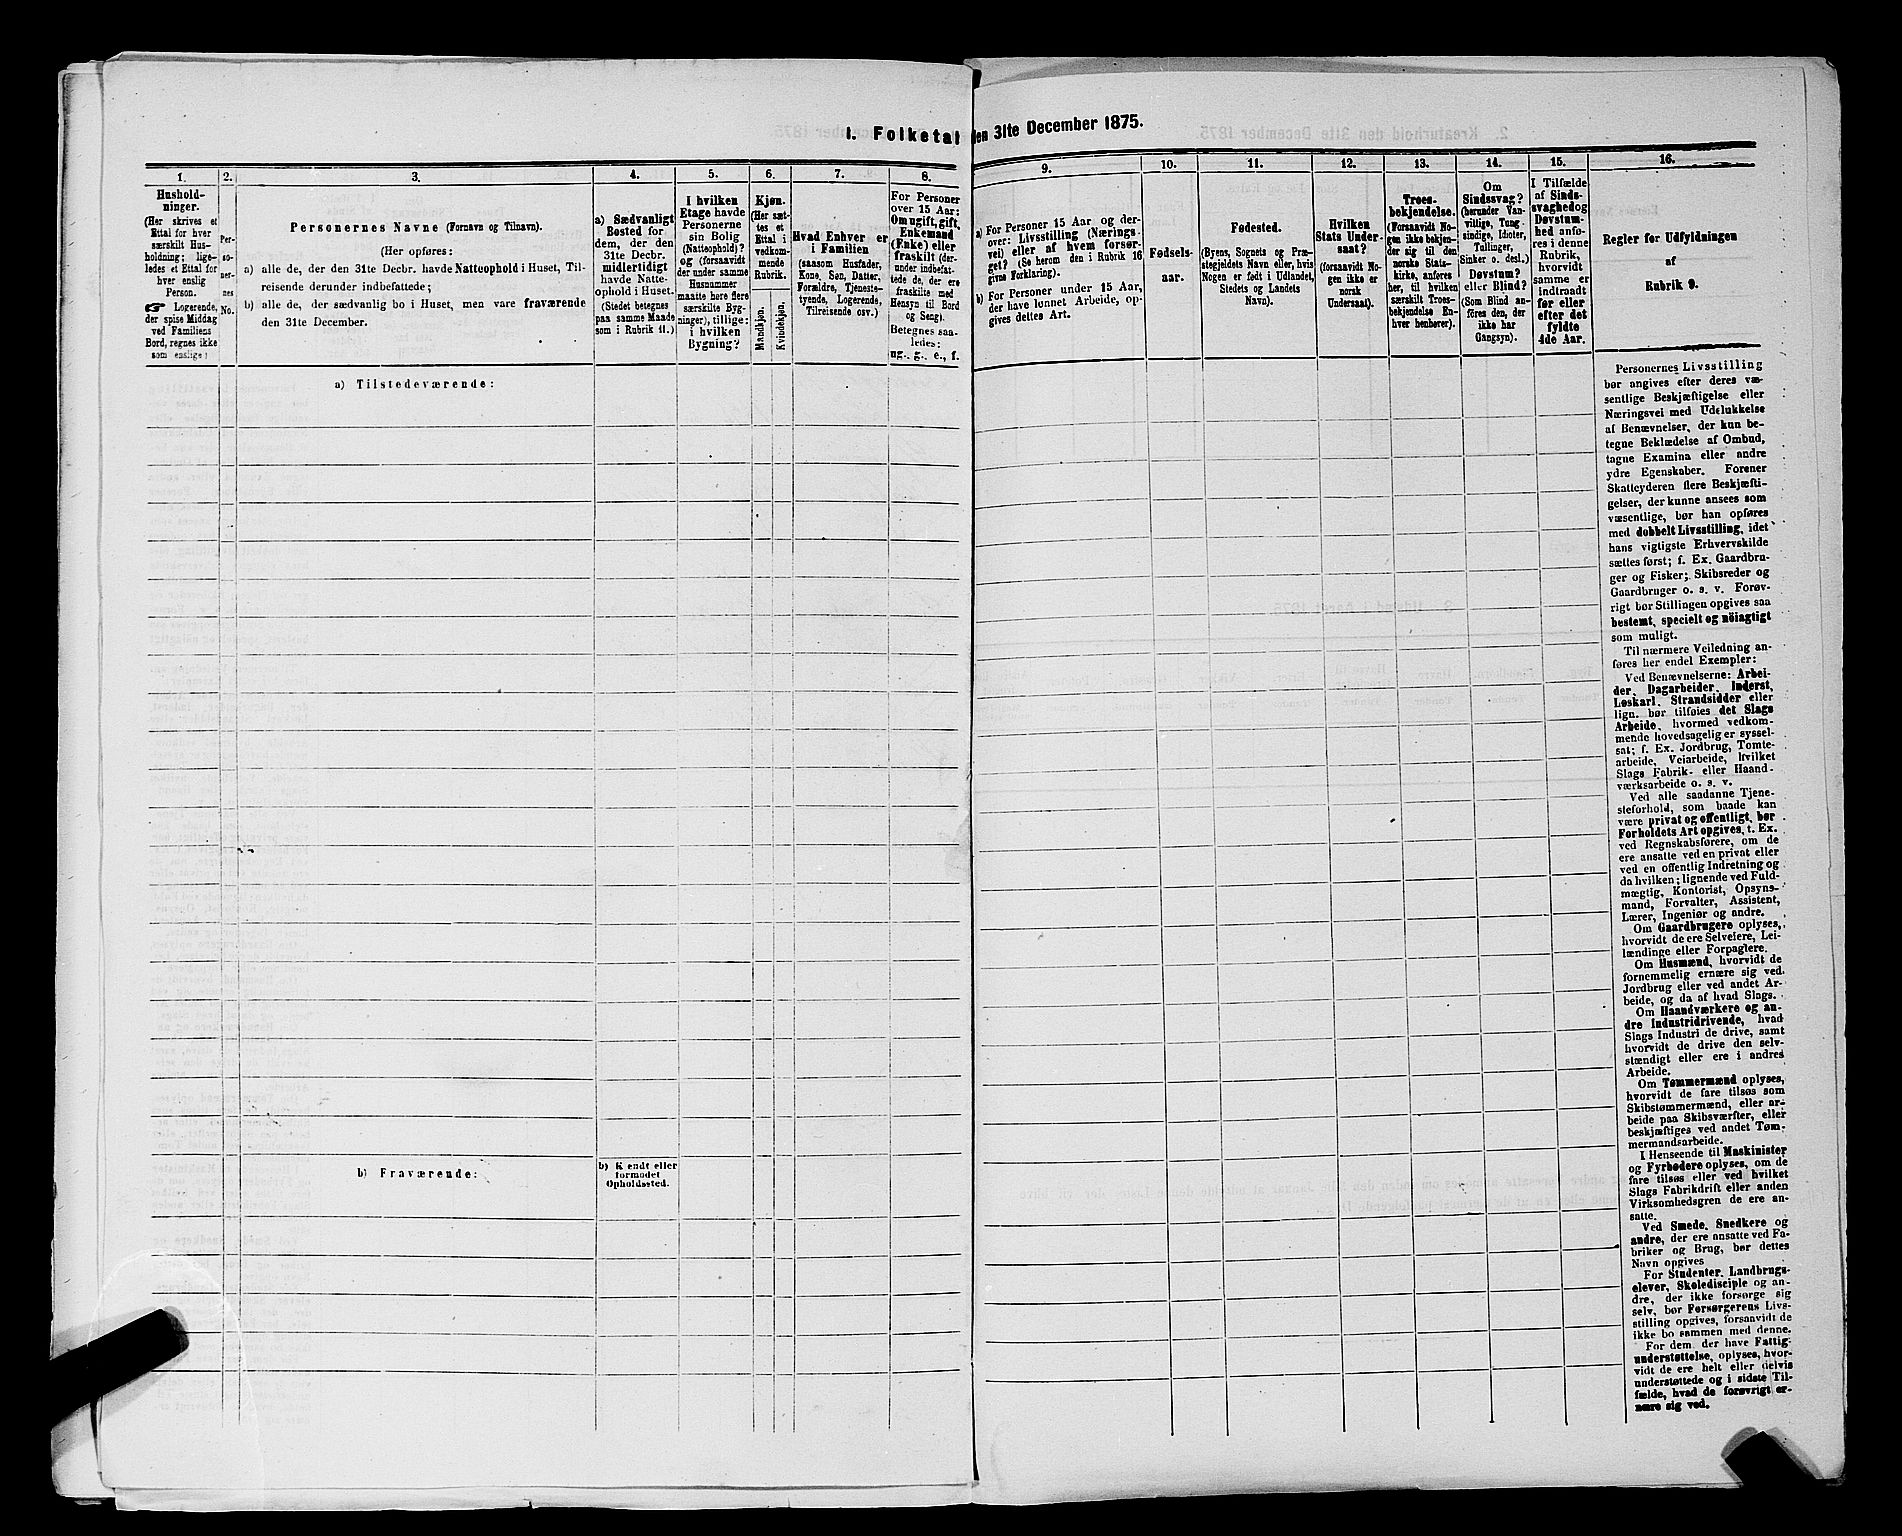 1. Folketal den 31te December 1875.
1.
Hushold-
ninger.
(Her skrives et
Ettal for hver
særskilt Hus-
holdning; lige-
ledes et Ettal for
hver enslig
Person.
☞ Logerende,
der spise Middag
ved Familiens
Bord, regnes ikke
som enslige)
2.
Per-
so-
ner-
nes
No.
3.
Personernes Navne (Fornavn og Tilnavn).
(Her opføres:
a) alle de, der den 31te Decbr. havde Natteophold i Huset, Til-
reisende derunder indbefattede;
b) alle de, der sædvanlig bo i Huset, men vare fraværende
den 31te December.
4.
a) Sædvanligt
Bosted for
dem, der den
31te Decbr.
midlertidigt
havde Natte-
ophold i Huset.
(Stedet betegnes
paa samme Maade
som i Rubrik 11.)
5.
I hvilken
Etage havde
Personerne
sin Bolig
(Natteophold)?
og (forsaavidt
der under samme
Husnummer
maatte høre flere
særskilte Byg-
ninger), tillige:
i hvilken
Bygning?
6.
Kjøn.
(Her sæt-
tes et
Ettal i
vedkom-
mende
Rubrik.
Mandkjøn.
Kvindekjøn.
7.
Hvad Enhver er
i Familien
(saasom Husfader,
Kone, Søn, Datter,
Forældre, Tjeneste-
tyende, Logerende,
Tilreisende osv.)
8.
For Personer
over 15 Aar:
Om ugift, gift,
Enkemand
(Enke) eller
fraskilt (der-
under indbefat-
tede de, der ere
fraskilte med
Hensyn til Bord
og Seng).
Betegnes saa-
ledes:
ug., g., e., f.
9.
a) For Personer 15 Aar og der-
over: Livsstilling (Nærings-
vei) eller af hvem forsør-
get? (Se herom den i Rubrik 16
givne Forklaring).
b) For Personer under 15 Aar,
der have lønnet Arbeide, op-
gives dettes Art.
10.
Fødsels-
aar.
11.
Fødested.
(Byens, Sognets og Præ-
stegjeldets Navn eller, hvis
Nogen er født i Udlandet,
Stedets og Landets
Navn).
12.
Hvilken
Stats Under-
saat?
(forsaavidt No-
gen ikke er
norsk
Undersaat).
13.
Troes-
bekjendelse.
(Forsaavidt No-
gen ikke bekjen-
der sig til den
norske Stats-
kirke, anføres
her, til hvilken
særskilt Troes-
bekjendelse En-
hver henhører).
14.
Om
Sindssvag?
(herunder Van-
vittige, Tung-
sindige, Idioter,
Tullinger,
Sinker o. desl.)
Døvstum?
eller Blind?
(Som Blind an-
føres den, der
ikke har
Gangsyn).
15.
I Tilfælde
af Sinds-
svaghed og
Døvstum-
hed anfø-
res i denne
Rubrik,
hvorvidt
samme er
indtraadt
før eller
efter det
fyldte
4de Aar.
16.
Regler for Udfyldningen
af
Rubrik 9.
a) Tilstedeværende:
b) Fraværende:
b) Kendt eller
formodet
Opholdssted.
Personernes Livsstilling
bør angives efter deres væ-
sentlige Beskjæftigelse eller
Næringsvei med Udelukkelse
af Benævnelser, der kun be-
tegne Beklædelse af Ombud,
tagne Examina eller andre
ydre Egenskaber. Forener
Skatteyderen flere Beskjæfti-
gelser, der kunne ansees som
væsentlige, bør han opføres
med dobbelt Livsstilling, idet
hans vigtigste Erhvervskilde
sættes først; f. Ex. Gaardbru-
ger og Fisker; Skibsreder og
Gaardbruger o. s. v. Forøv-
rigt bør Stillingen opgives saa
bestemt, specielt og nöiagtigt
som muligt.
Til nærmere Veiledning an-
føres her endel Exempler:
Ved Benævnelserne: Arbei-
der, Dagarbeider, Inderst,
Løskarl, Strandsidder eller
lign. bør tilføies det Slags
Arbeide, hvormed vedkom-
mende hovedsagelig er syssel-
sat; f. Ex. Jordbrug, Tomte-
arbeide, Veiarbeide, hvilket
Slags Fabrik- eller Haand-
værksarbeide o. s. v.
Ved alle saadanne Tjene-
steforhold, som baade kan
være privat og offentligt, bør
Forholdets Art opgives, t. Ex.
ved Regnskabsførere, om de
ere ansatte ved en privat eller
ved en offentlig Indretning og
da hvilken; lignende ved Fuld-
mægtig, Kontorist, Opsyns-
mand, Forvalter, Assistent,
Lærer, Ingeniør og andre.
Om Gaardbrugere oplyses,
hvorvidt de ere Selveiere, Lei-
lændinge eller Forpagtere.
Om Husmænd, hvorvidt de
fornemmelig ernære sig ved
Jordbrug eller ved andet Ar-
beide, og da af hvad Slags.
Om Haandværkere og an-
dre Industridrivende, hvad
Slags Industri de drive, samt
hvorvidt de drive den selv-
stændigt eller ere i andres
Arbeide.
Om Tømmermænd oplyses,
hvorvidt de fare tilsøs som
Skibstømmermænd, eller ar-
beide paa Skibsværfter, eller
beskjæftiges ved andet Tøm-
mermandsarbeide.
I Henseende til Maskinister
og Fyrbødere oplyses, om de
fare tilsøs eller ved hvilket
Slags Fabrikdrift eller anden
Virksomhedsgren de ere an-
satte.
Ved Smede, Snedkere og
andre, der ere ansatte ved Fa-
briker og Brug, bør dettes
Navn opgives
For Studenter, Landbrugs-
elever, Skoledisciple og an-
dre, der ikke forsørge sig
selv, bør Forsørgerens Livs-
stilling opgives, forsaavidt de
ikke bo sammen med denne.
For dem, der have Fattig-
understøttelse, oplyses, hvor-
vidt de ere helt eller delvis
understøttede og i sidste Til-
fælde, hvad de forøvrigt er-
nære sig ved.